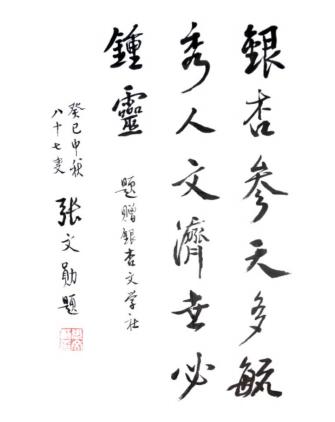 銀杏參天多毓
秀人文濟世必
鍾靈
題贈銀杏文学社
癸巳中秋
八十七叟
張文勛題